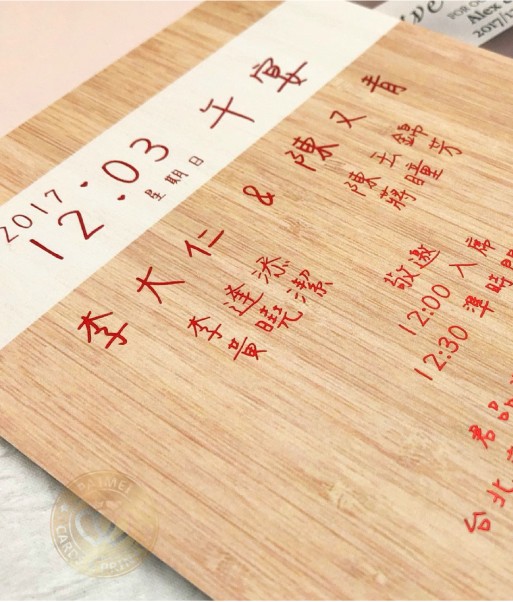 2017.
12.03
星期日
午宴
李大仁 & 陳又青
李逢添
黃曉潔
陳玉錦
蔣瞳芳
敬邀
12:00 入席
12:30 準時開
君品
台北
FOR OU
Alex
2017/1